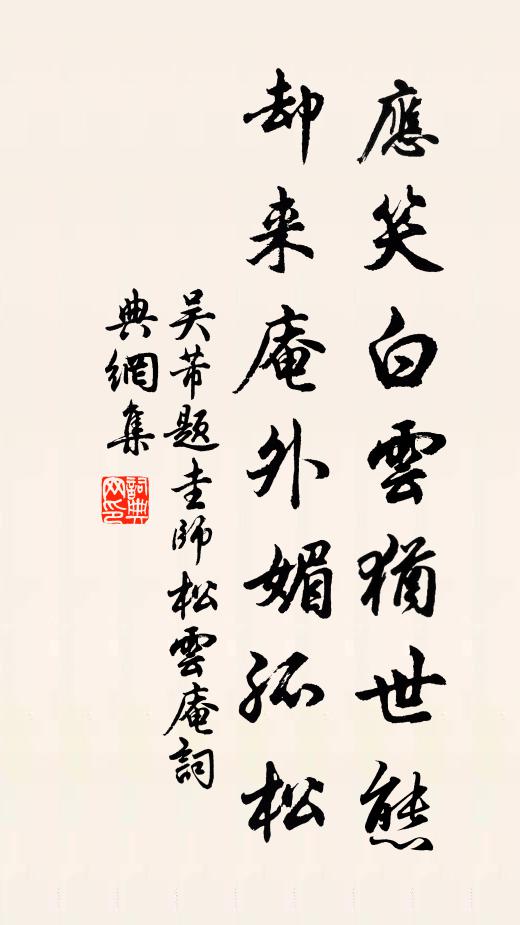 應笑白雲猶世態
却来庵外媚孤松
吴芾題圭師松雲庵詞
典網集
詞典网印